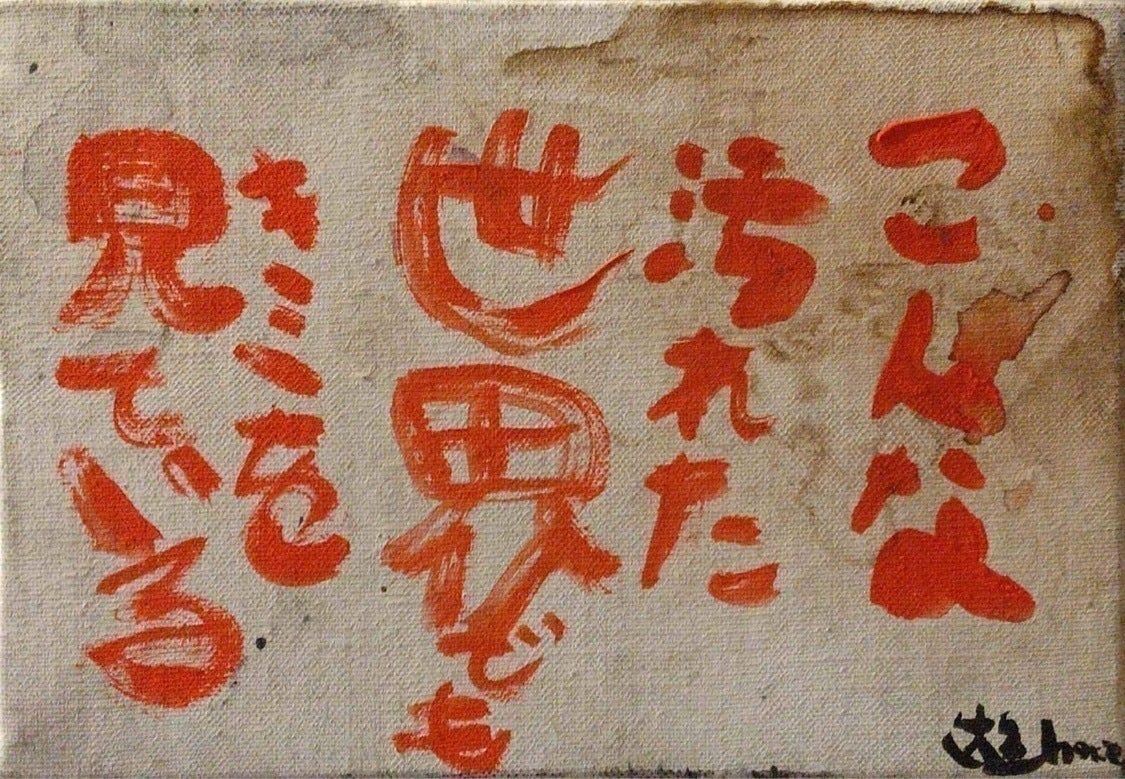 こんな
汚れた
世界でも
きみを
見ている